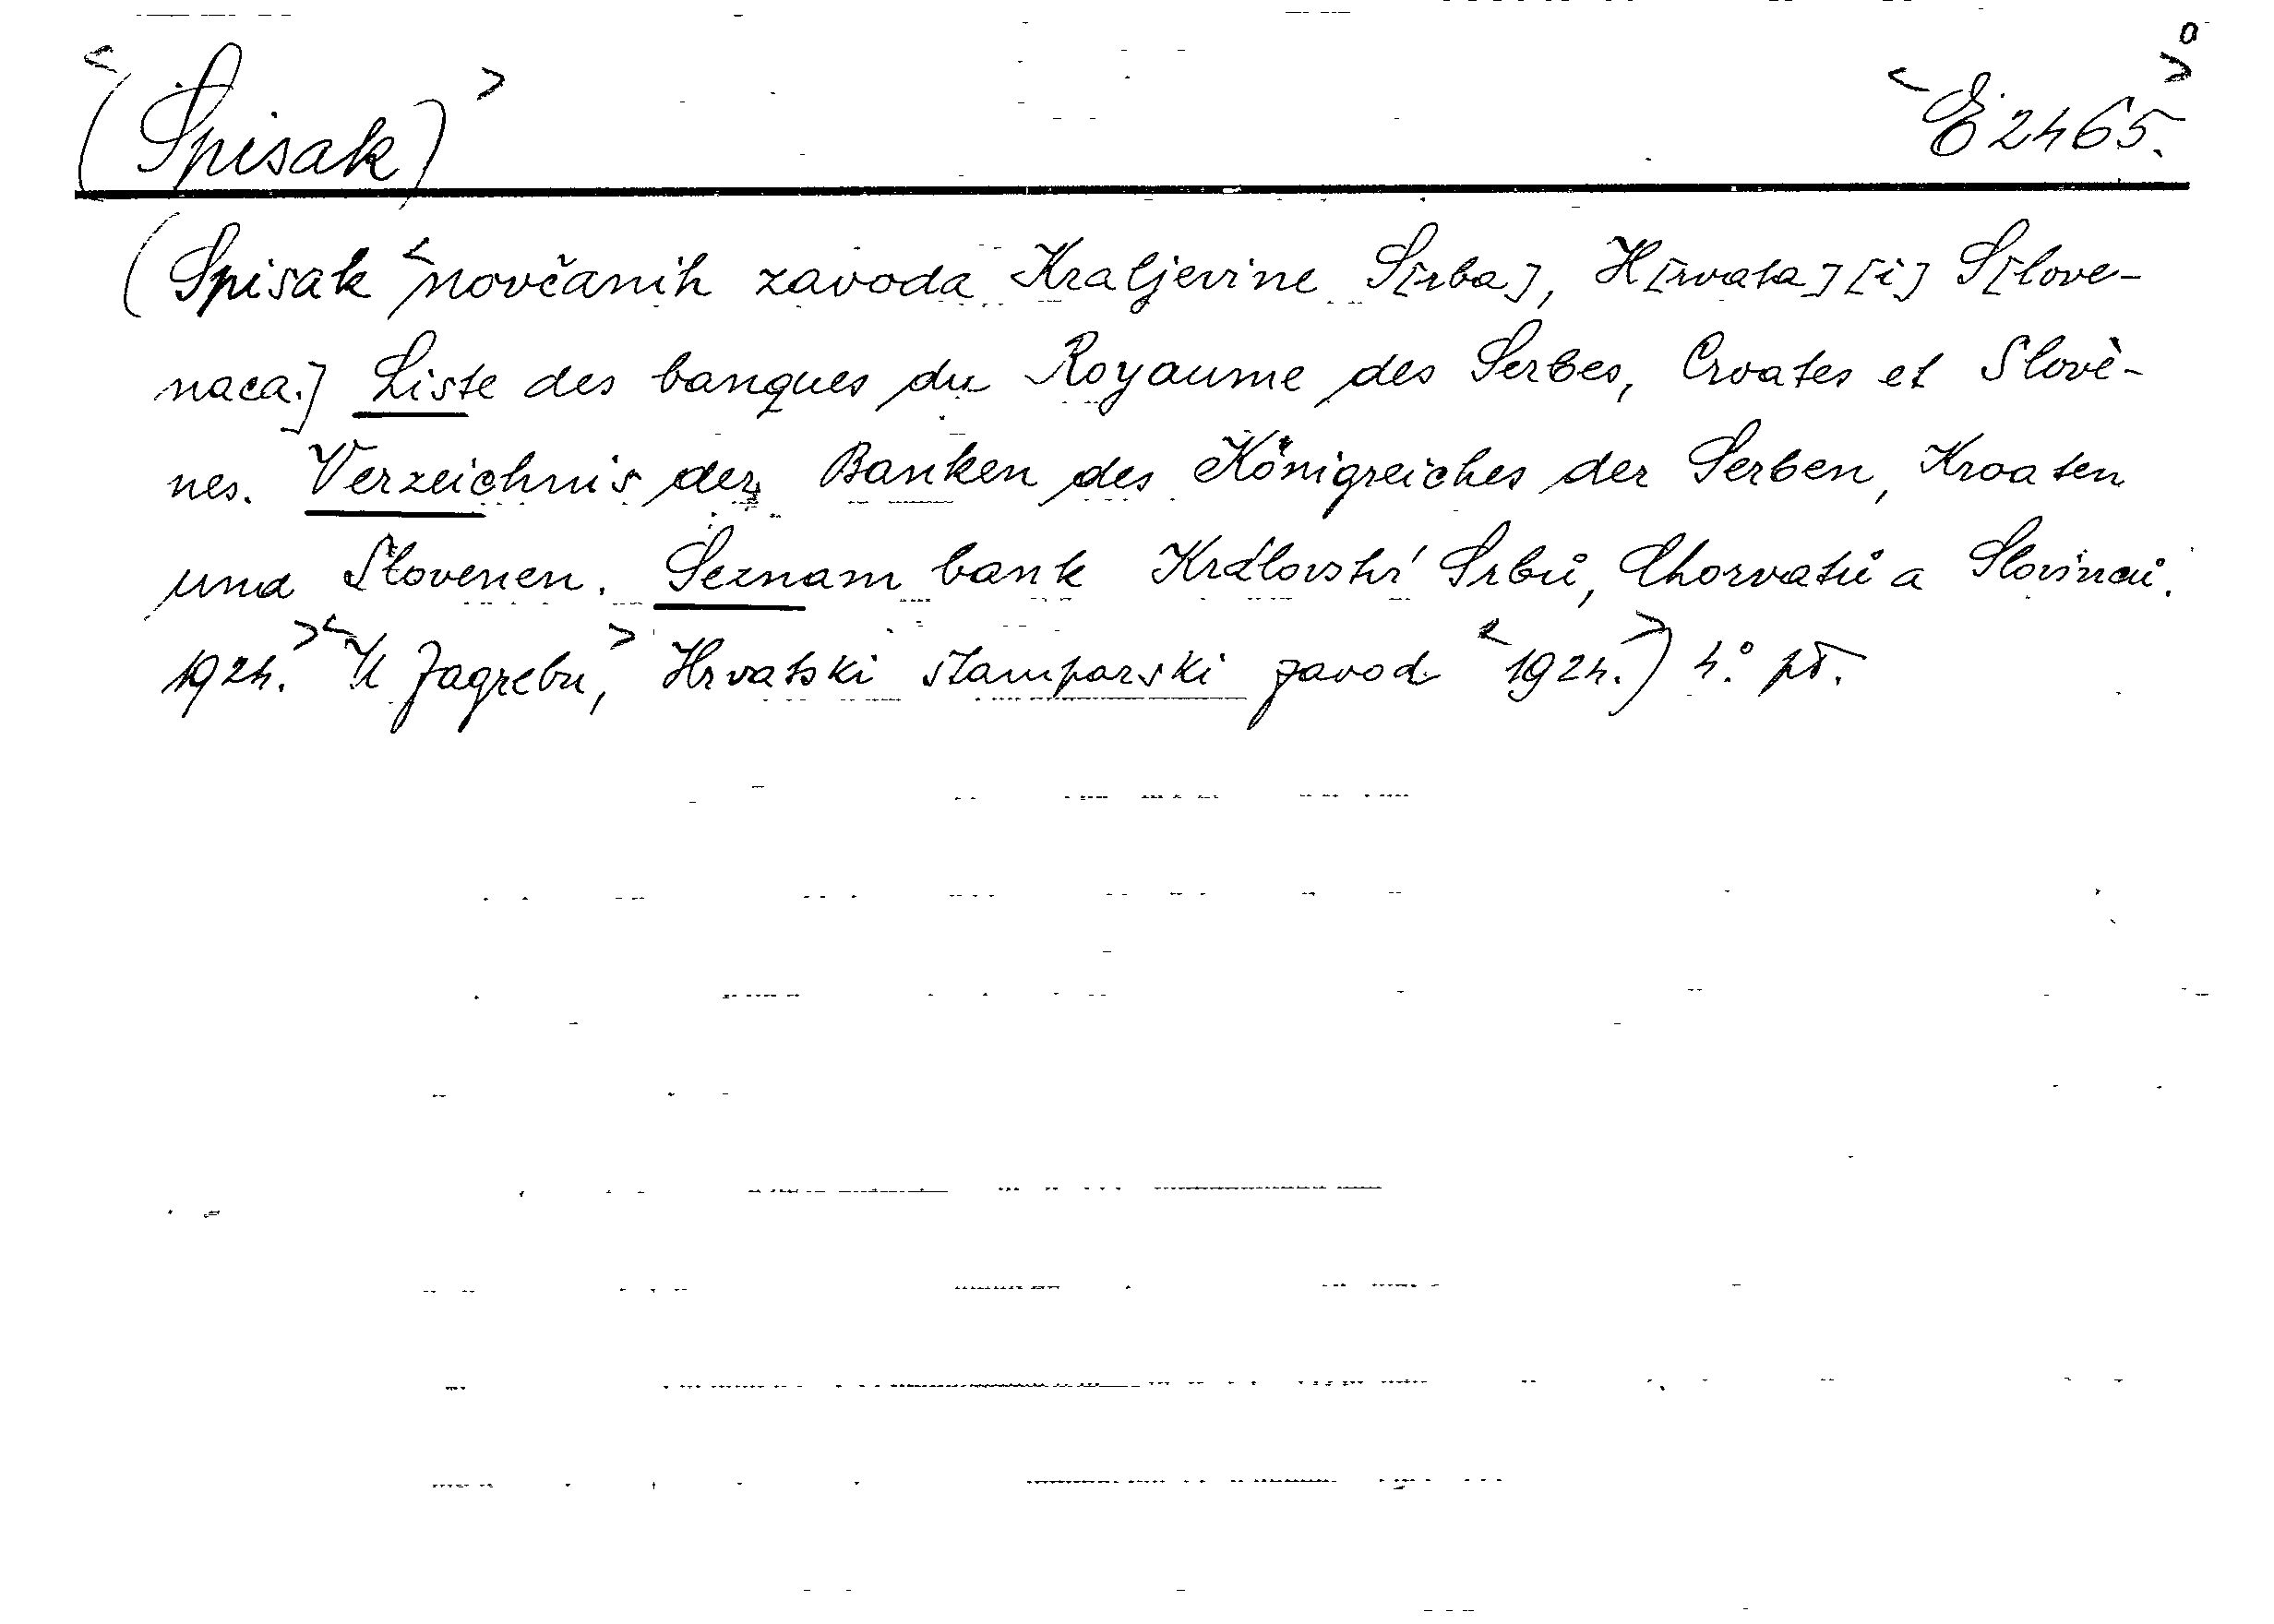 <(Spisak)> <E 2465.>°
(Spisak <novčanih zavoda Kraljevine S[rba], H[rvata] [i] S[love-
naca.] Liste des banques du Royaume des Serbes, Croates et Slovè-
nes. Verzeichnis der Banken des Königreiches der Serben, Kroaten
und Slovenen. Seznam bank Království Srbů, Chorvatů a Slovinců.
1924.> <U Zagrebu,> Hrvatski štamparski zavod <1924.>) 4.° př.